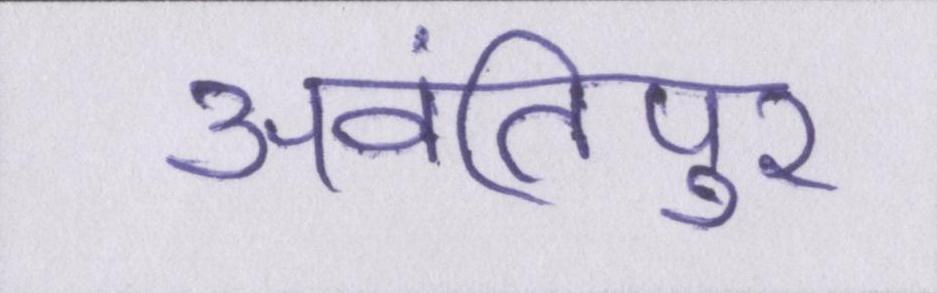 अवंतिपुर